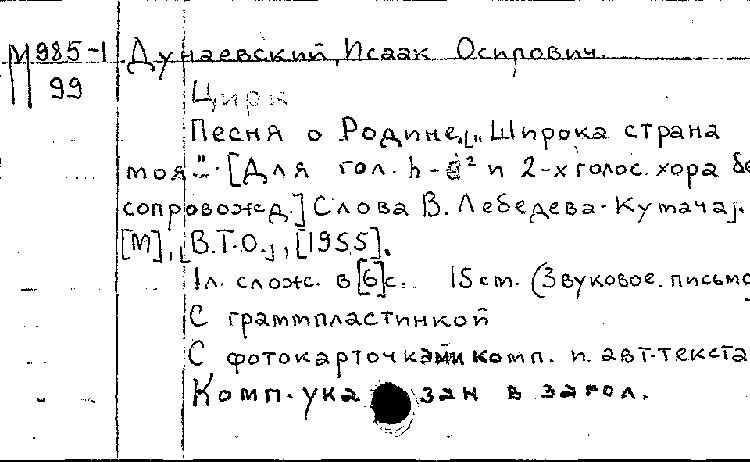 М985-1 Дунаевский, Исаак Осипович.
99
Цирк
Песня о Родине. [„Широка страна
моя". [Для гол. h-e² и 2-х голос. хора бе
сопровожд.] Слова В. Лебедева-Кумача].
[М], [В.Т.О.], [1955].
1л. слож. в [6]с. 15 см. (Звуковое. письмо
С граммпластинкой
С фотокарточками комп. и авт. текста
Комп. указан в загол.